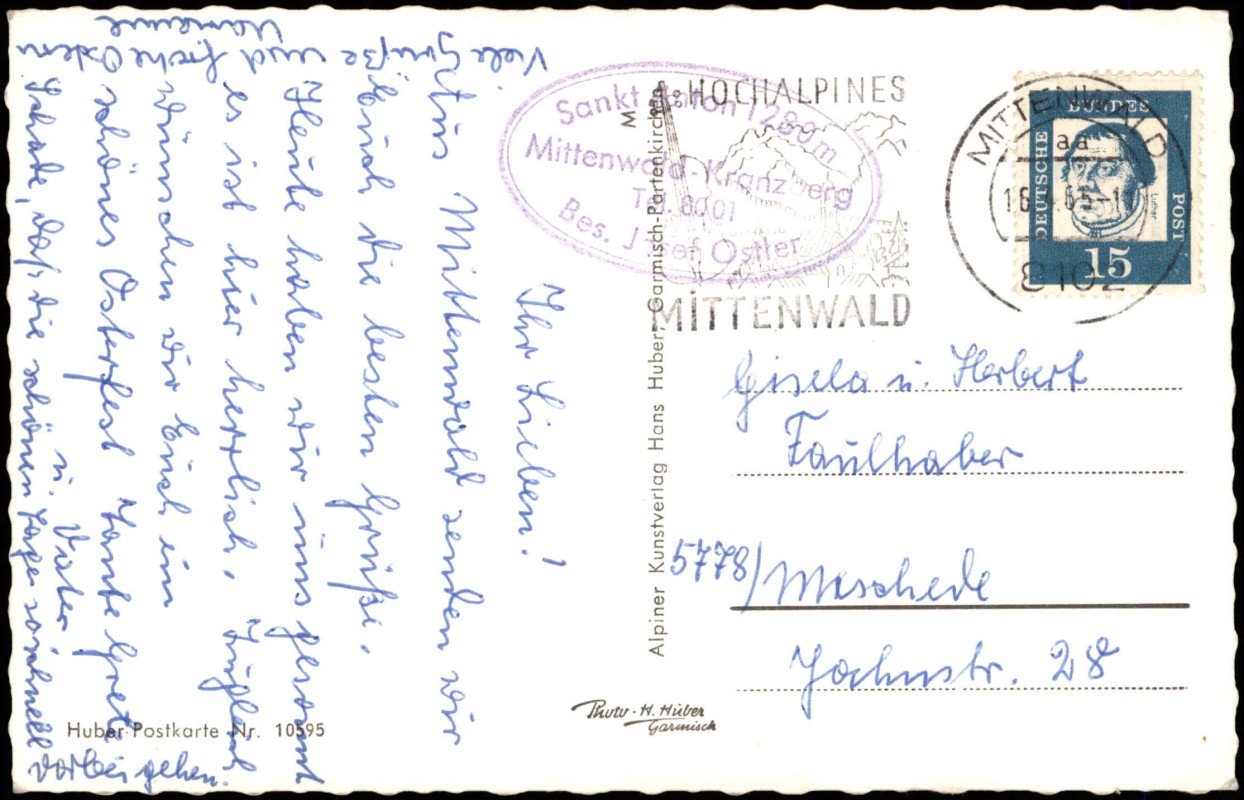 Ihr Lieben!
Aus Mittenwald senden wir
Euch die besten Grüße.
Heute haben wir uns gesonnt
es ist hier herrlich. Zugleich
wünschen wir Euch ein
schönes Osterfest Tante Grete
u. Vater
Schade, daß die schönen Tage so schnell
vorbei gehen.
Viele Grüße
und frohe Ostern
Sankt Anton 1280m
Mittenwald-Kranzberg
Tel. 8001
Bes. Josef Ostler
HOCHALPINES
MITTENWALD
MITTENWALD
aa
8102
DEUTSCHE
BUNDES
POST
Luther
15
Gisela u. Herbert
Faulhaber
5778/Meschede
Jahnstr. 28
Alpiner Kunstverlag Hans Huber, Garmisch-Partenkirchen
Huber-Postkarte Nr. 10595
Photo-H. Huber
Garmisch